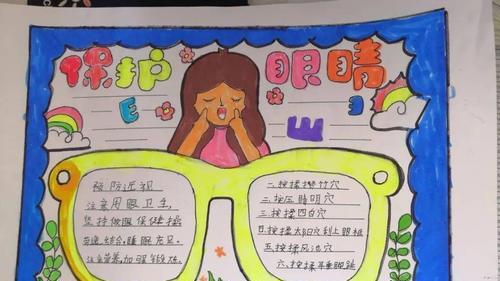 保护眼睛
E E E
预防近视
注意用眼卫生,
坚持做眼保健操
结合,睡眠充足。
注意营养,加强锻炼
一、按揉攒竹穴
二、按压睛明穴
三、按揉四白穴
四、按揉太阳穴刮上眼眶
五、按揉风池穴
六、按揉耳垂眼